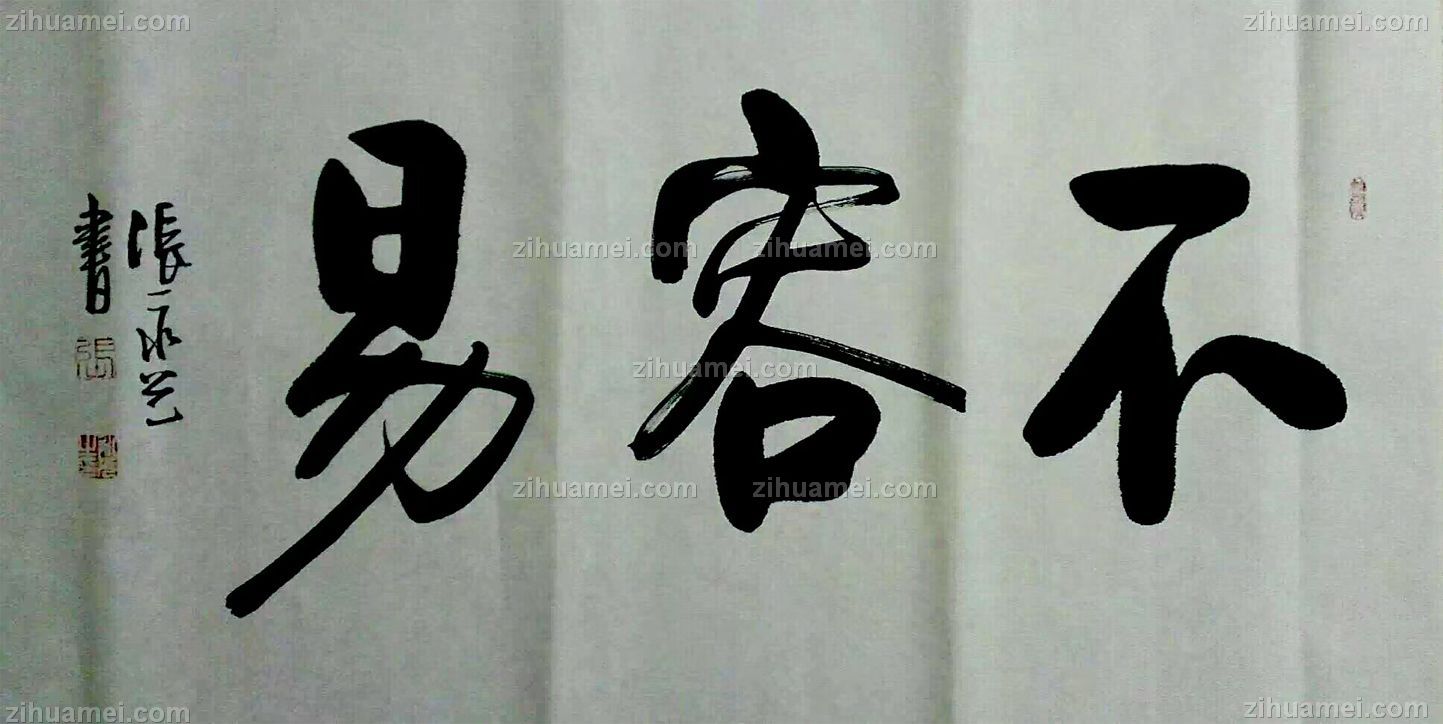 不容易
張永兰
書
zihuamei.com
zihuamei.com
zihuamei.com
zihuamei.com
zihuamei.com
zihuamei.com
zihuamei.com
zihuamei.com
zihuamei.com